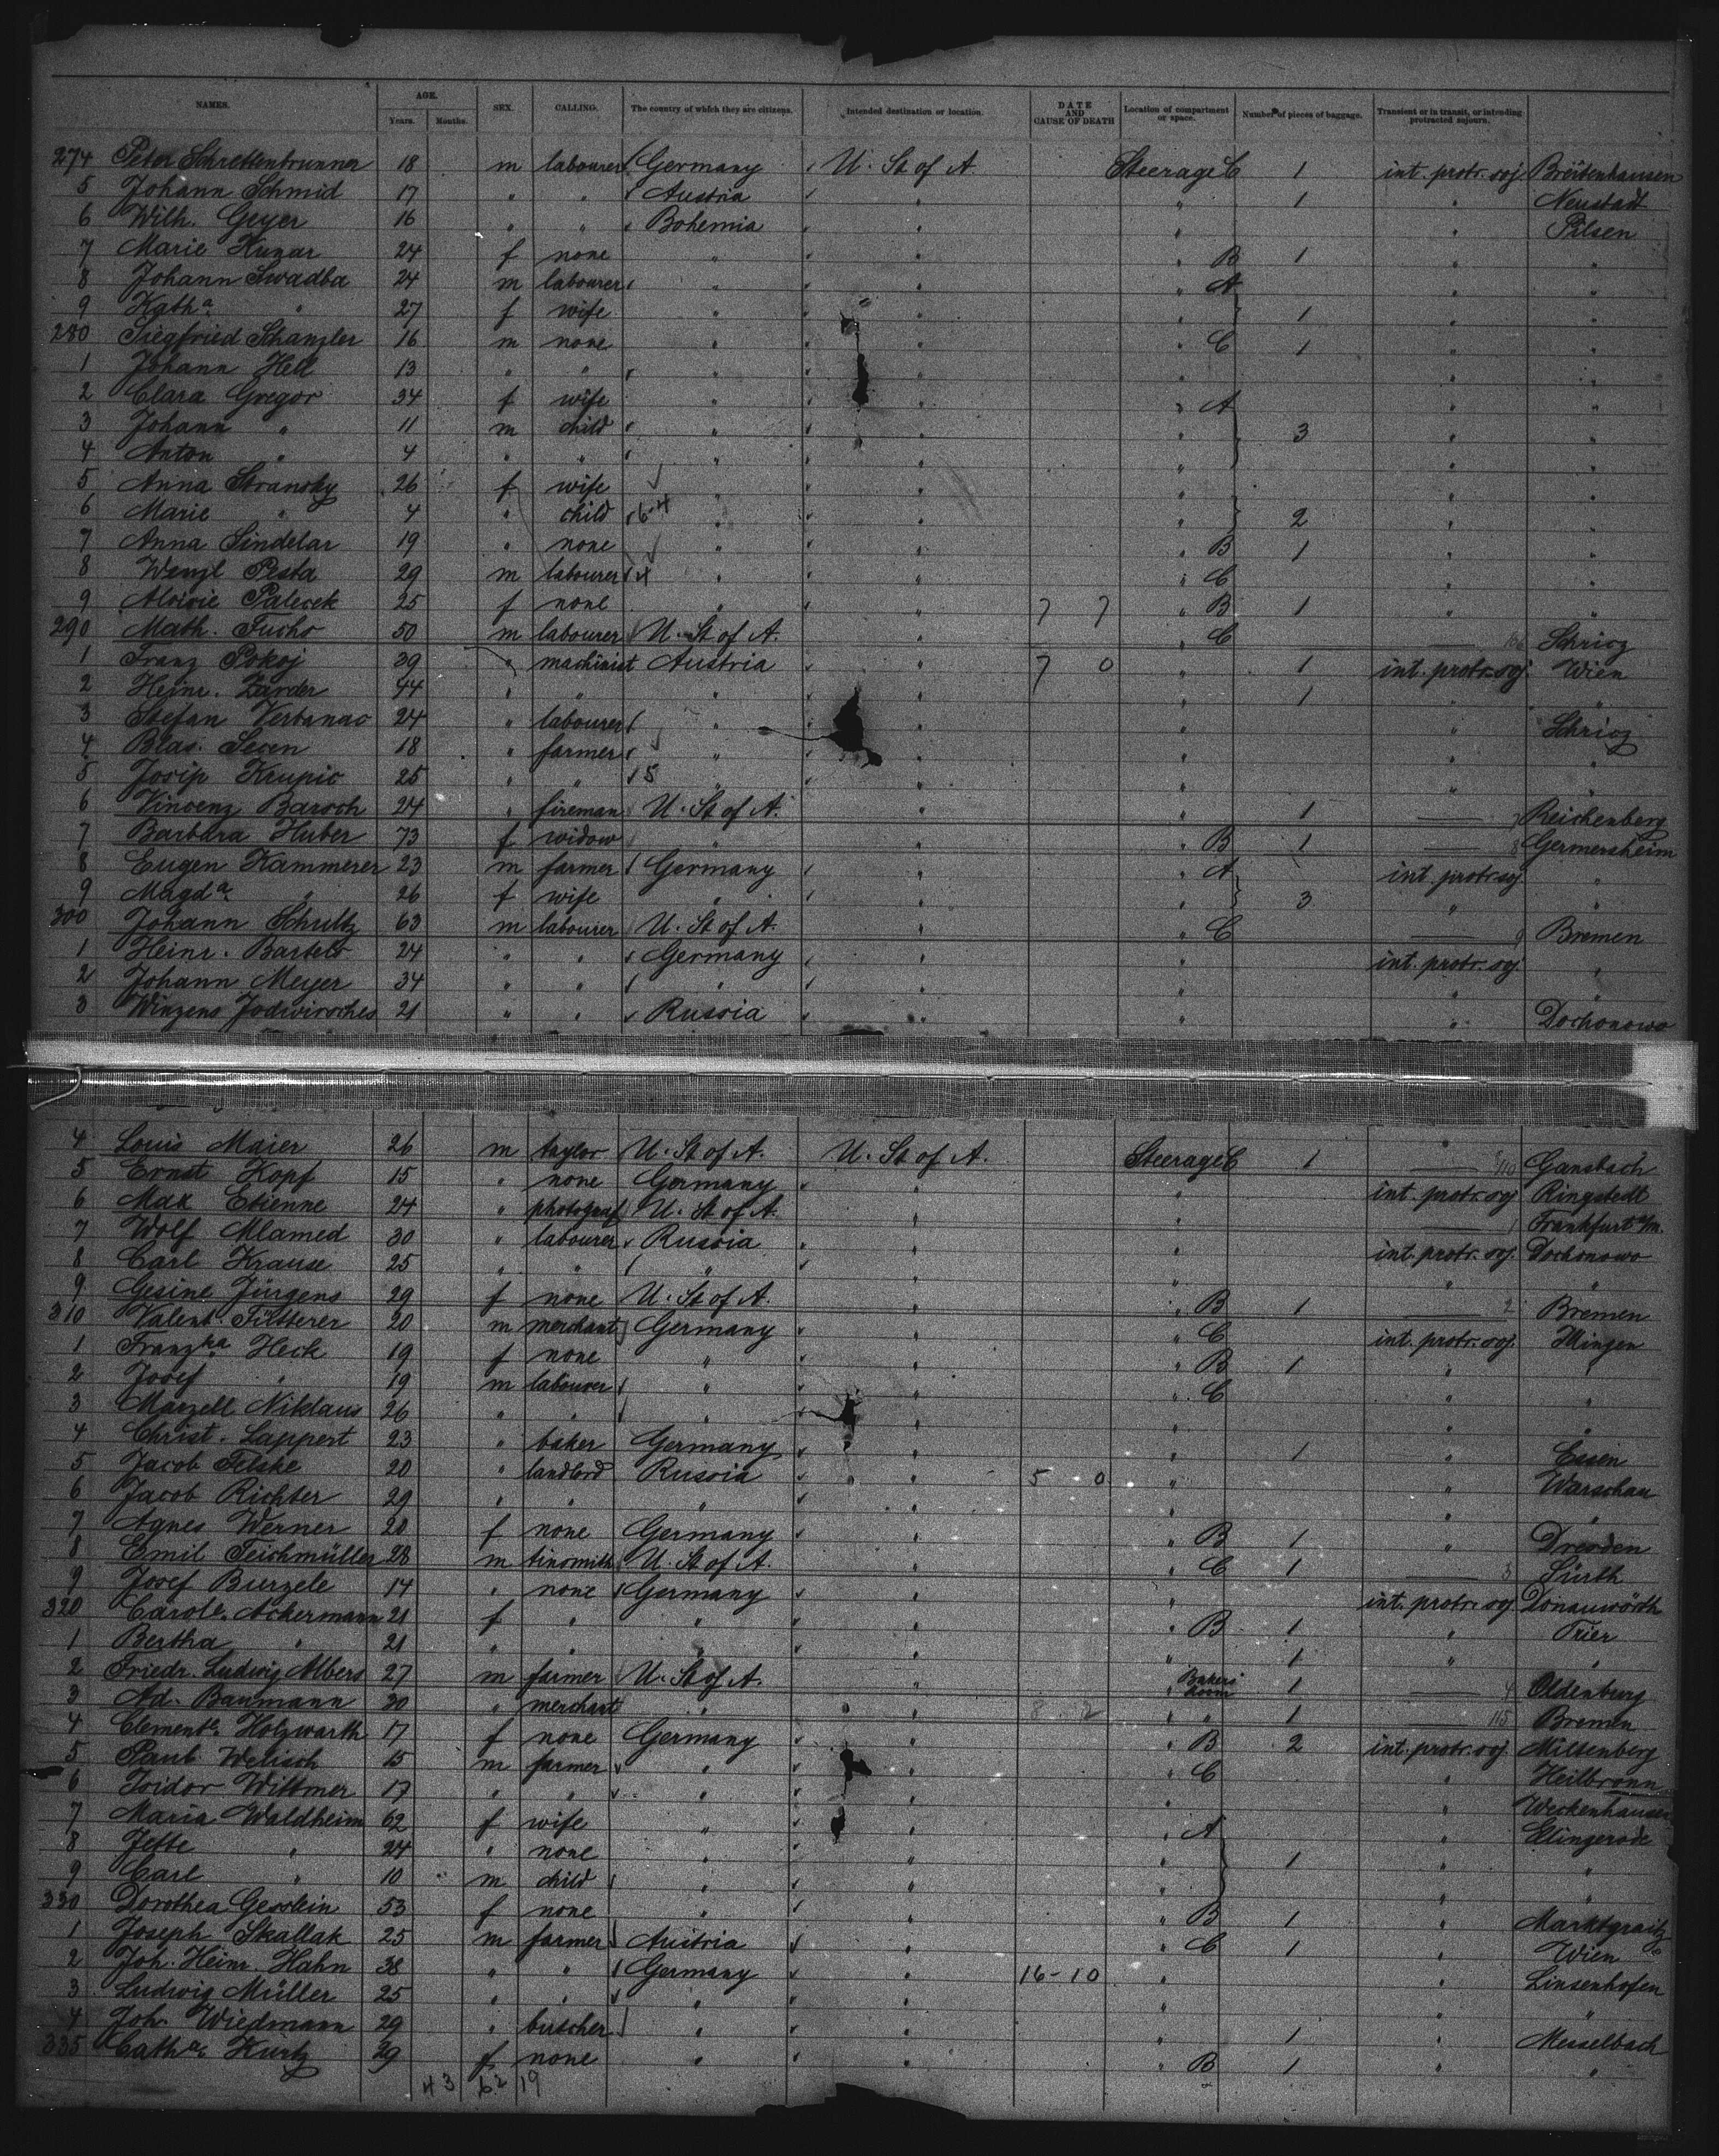 NAMES. AGE. Years. Months. SEX. CALLING. The country of which they are citizens. Intended destination or location. DATE AND CAUSE OF DEATH Location of compartment or space. Number of pieces of baggage. Transient or in transit, or intending protracted sojourn.
274 Peter Schrettenbrunner 18 m labourer Germany U. St of A. Steerage C 1 int. protr. soj Breitenhausen
5 Johann Schmid 17 " " Austria " " 1 " Neustadt
6 Wilh. Geyer 16 " " Bohemia " " " Pilsen
7 Marie Kunar 24 f none " " " B 1 " "
8 Johann Swadba 24 m labourer " " " A " "
9 Katha. " 27 f wife " " " 1 " "
280 Siegfried Schanzler 16 m none " " " C 1 " "
1 Johann Hell 13 " " " " " " "
2 Clara Gregor 34 f wife " " " A " "
3 Johann " 11 m child " " " 3 " "
4 Anton " 4 " " " " " " "
5 Anna Stransky 26 f wife " " " " "
6 Marie " 4 " child 6-4 " " " 2 " "
7 Anna Sindelar 19 " none " " " B 1 " "
8 Wenzl Pesta 29 m labourer " " " C " "
9 Aloisie Palecek 25 f none " " 7 7 " B 1 " "
290 Math. Fuchs 50 m labourer U. St of A. " " C 106
1 Franz Pokoj 39 " machinist Austria " 7 0 " 1 int. protr. soj. Wien
2 Heinr. Zarder 44 " " " " " 1 " "
3 Stefan Verbanac 24 " labourer " " " "
4 Blas. Secen 18 " farmer " " " " "
5 Josip Krupic 25 " " 5 " " " " "
6 Vincenz Baroch 24 " fireman U. St of A. " " 1 7 Reichenberg
7 Barbara Huber 73 f widow " " " B 1 8 Germersheim
8 Eugen Kammerer 23 m farmer Germany " " A int. protr. soj "
9 Magda. " 26 f wife " " " 3 " "
300 Johann Schultz 63 m labourer U. St of A. " " C 9 Bremen
1 Heinr. Bartels 24 " " Germany " " int. protr. soj. "
2 Johann Meyer 34 " " " " " " "
3 Winzens Jodwirsches 21 " " Russia " " " Dochonowo
4 Louis Maier 26 m taylor U. St of A. U. St of A. Steerage C 1 110 Gansbach
5 Ernst Kopf 15 " none Germany " " int. protr. soj Ringstedt
6 Max Etienne 24 " photograf U. St of A. " " 1 Frankfurt a/m.
7 Wolf Mlamed 30 " labourer Russia " " int. protr. soj. Dochonowo
8 Carl Krause 25 " " " " " " "
9 Gesine Jürgens 29 f none U. St of A. " " B 1 2 Bremen
310 Valent. Fütterer 20 m merchant Germany " " C int. protr. soj.
1 Franzka Heck 19 f none " " " B 1 " "
2 Josef " 19 m labourer " " " C " "
3 Marzell Niklaus 26 " " " " " " "
4 Christ. Lappert 23 " baker Germany " " 1 " Essen
5 Jacob Felske 20 " landlord Russia " 5 0 " " Warschau
6 Jacob Richter 29 " " " " " " "
7 Agnes Werner 20 f none Germany " " B 1 " Dresden
8 Emil Teichmüller 28 m tinsmith U. St of A. " " C 1 3 Fürth
9 Josef Burzele 14 " none Germany " " int. protr. soj. Donauwörth
320 Carole. Ackermann 21 f " " " " B 1 " Trier
1 Bertha " 21 " " " " " 1 " "
2 Friedr. Ludwig Albers 27 m farmer U. St of A. " " Bakers room 1 4 Oldenburg
3 Ad. Baumann 30 " merchant " " 8 12 " " 1 115 Bremen
4 Clemente. Holzwarth 17 f none Germany " " B 2 int. protr. soj. Miltenberg
5 Paul Welisch 15 m farmer " " " C " Heilbronn
6 Isidor Wittmer 17 " " " " " " Weckenhausen
7 Maria Waldheim 62 f wife " " " A " Ellingerode
8 Jette " 24 " none " " " 1 " "
9 Carl " 10 m child " " " " "
330 Dorothea Gesslein 53 f none " " " B 1 " Marktgraitz
1 Joseph Skallak 25 m farmer Austria " " C 1 " Wien
2 Joh. Heinr. Hahn 38 " " Germany " 16-10 " " Linsenhofen
3 Ludwig Müller 25 " " " " " " "
4 Joh. Wiedmann 29 " butcher " " " 1 " Messelbach
335 Catha. Kurtz 29 f none " " " B 1 " "
43 62 19